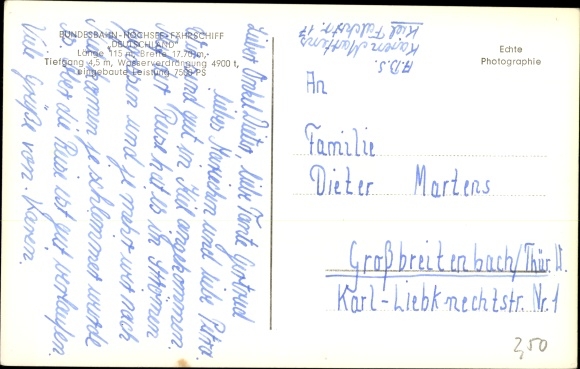 BUNDESBAHN-HOCHSEE-FÄHRSCHIFF
"DEUTSCHLAND"
Länge 115 m, Breite 17,70 m,
Tiefgang 4,5 m, Wasserverdrängung 4900 t,
eingebaute Leistung 7500 PS
Lieber Onkel Dieter, liebe Tante Gertrud
liebes Mariechen und liebe Petra.
Wir sind gut in Kiel angekommen.
Reise hat es in Strömen
und je mehr wir nach
kamen je schlimmer wurde
es. Aber die Reise ist gut verlaufen.
Viele Grüße von Karen.
ABS.
Karen Martens
Kiel
Echte
Photographie
An
Familie
Dieter Martens
Großbreitenbach/Thür. W.
Karl-Liebknechtstr. Nr. 1
2,50